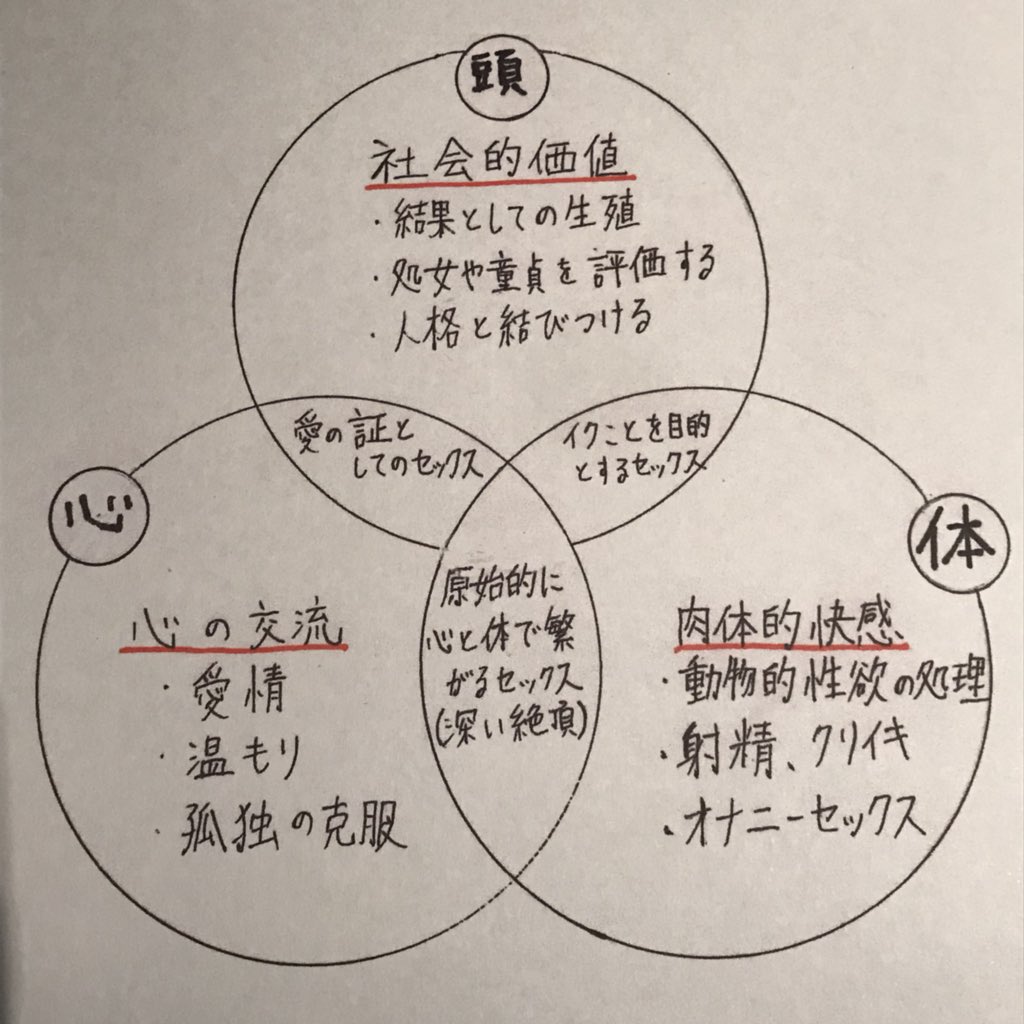 頭
社会的価値
・結果としての生殖
・処女や童貞を評価する
・人格と結びつける
愛の証と
してのセックス
イクことを目的
とするセックス
心
体
原始的に
心と体で繋
がるセックス
(深い絶頂)
心の交流
・愛情
・温もり
・孤独の克服
肉体的快感
・動物的性欲の処理
・射精、クリイキ
・オナニーセックス